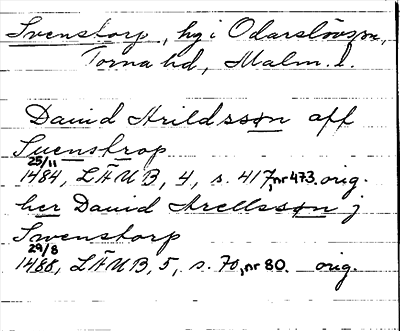 Svenstorp, hg i Odarslövs sn,
Torna hd, Malm. l.
David Arildsson aff
Suenstrop
25/11
1484, LÄUB, 4, s. 417, nr 473. orig.
her David Arellsson j
Swenstorp
29/8
1488, LÄUB, 5, s. 70, nr 80. orig.